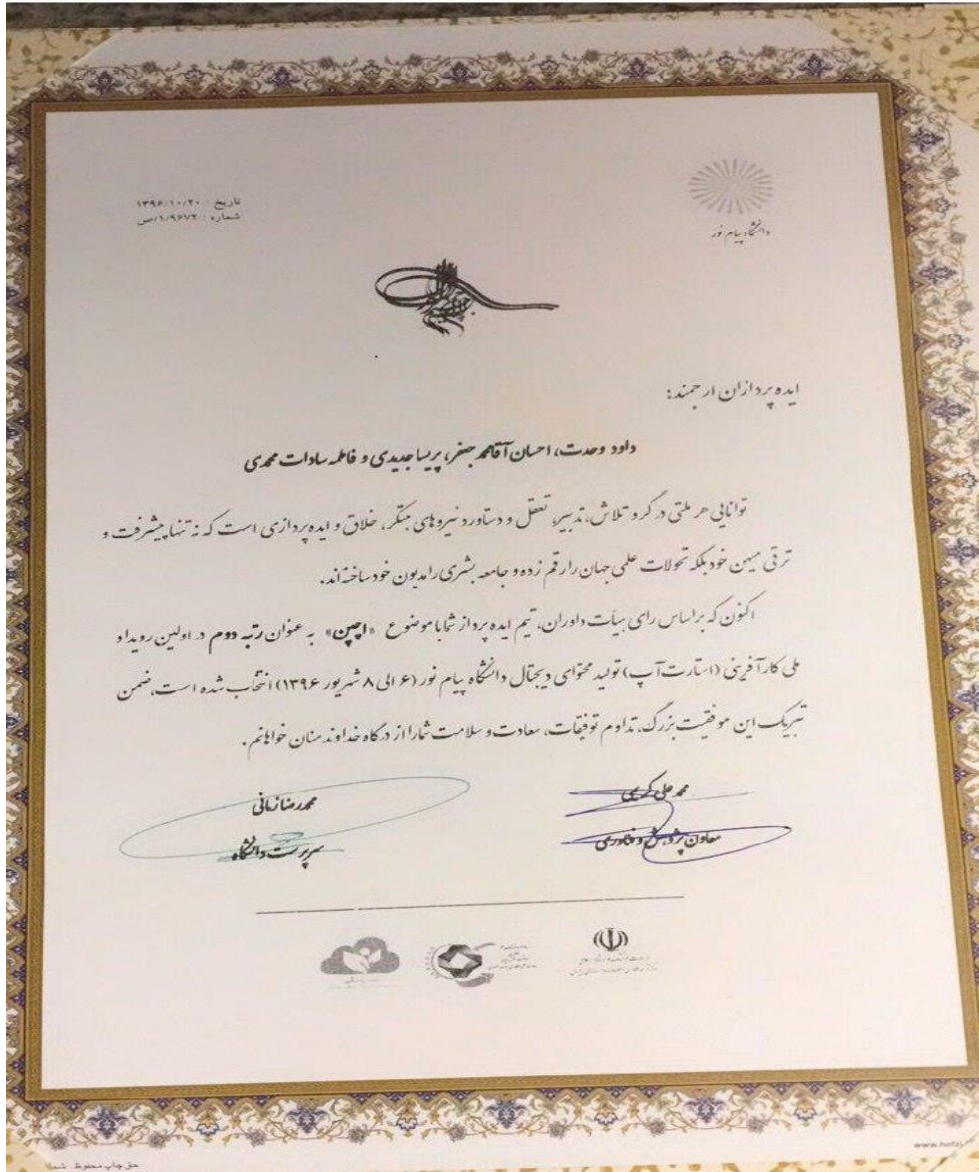 تاریخ : ۱۳۹۶/۱۰/۲۰
شماره : ۱/۹۶۷۲/ص
دانشگاه پیام نور
ایده پردازان ارجمند:
داود وحدت، احسان آقامحمدجعفر، پریسا جدیدی و فاطمه سادات محمدی
توانایی هر ملتی در گرو تلاش، تدبیر، تعقل و دستاورد نیروهای مبتکر، خلاق و ایده پردازی است که نه تنها پیشرفت و
ترقی میهن خود بلکه تحولات علمی جهان را رقم زده و جامعه بشری را مدیون خود ساخته اند.
اکنون که براساس رای هیأت داوران، تیم ایده پرداز شما با موضوع «اچین» به عنوان رتبه دوم در اولین رویداد
ملی کارآفرینی (استارت آپ) تولید محتوای دیجتال دانشگاه پیام نور (۶ الی ۸ شهریور ۱۳۹۶) انتخاب شده است، ضمن
تبریک این موفقیت بزرگ، تداوم توفیقات، سعادت و سلامت شما را از درگاه خداوند منان خواهانم.
محمد علی کریمی
معاون پژوهش و فناوری
محمدرضا زمانی
سرپرست دانشگاه
حق چاپ محفوظ